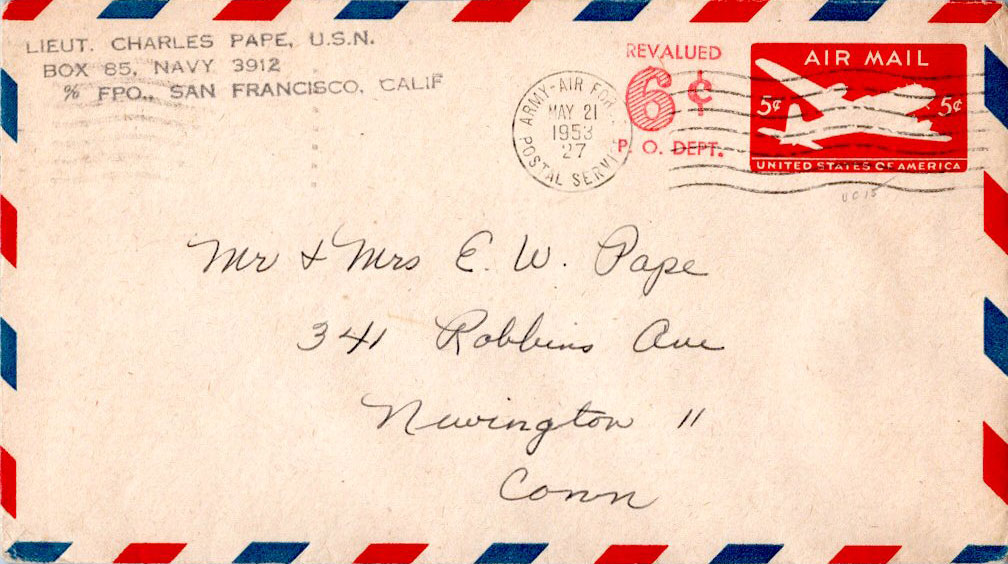 LIEUT. CHARLES PAPE, U.S.N.
BOX 85, NAVY 3912
% FPO., SAN FRANCISCO, CALIF
ARMY-AIR FOR
MAY 21
1953
27
POSTAL SERVICE
REVALUED
6¢
P. O. DEPT.
AIR MAIL
5¢ 5¢
UNITED STATES OF AMERICA
UC 15
Mr & Mrs E. W. Pape
341 Robbins Ave
Newington 11
Conn